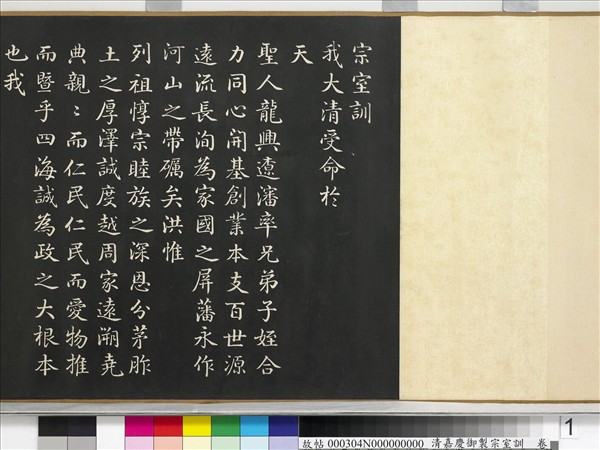 宗室訓
我大清受命於
天
聖人龍興遼瀋率兄弟子姪合
力同心開基創業本支百世源
遠流長洵為家國之屏藩永作
河山之帶礪矣洪惟
列祖惇宗睦族之深恩分茅胙
土之厚澤誠度越周家遠溯堯
典親〻而仁民仁民而愛物推
而暨乎四海誠為政之大根本
也我
1
故帖 000304N000000000 清嘉慶御製宗室訓 卷